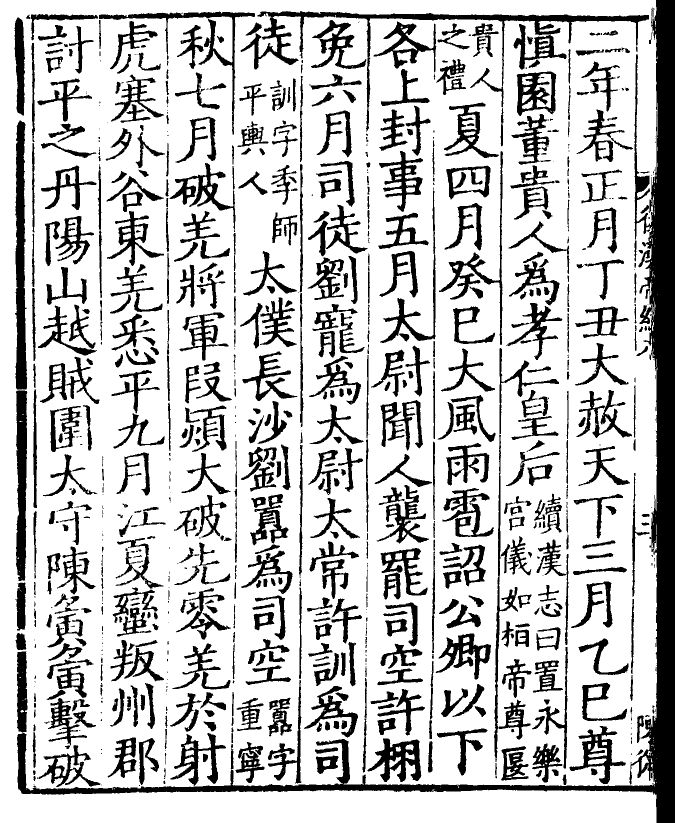 二年春正月丁丑大赦天下三月乙巳尊
愼園董貴人爲孝仁皇后續漢志曰置永樂宮儀如桓帝尊匽
貴人之禮夏四月癸巳大風雨雹詔公卿以下
各上封事五月太尉聞人襲罷司空許栩
免六月司徒劉寵爲太尉太常許訓爲司
徒訓字季師平輿人太僕長沙劉囂爲司空囂字重寧
秋七月破羌將軍段熲大破先零羌於射
虎塞外谷東羌悉平九月江夏蠻叛州郡
討平之丹陽山越賊圍太守陳夤夤擊破